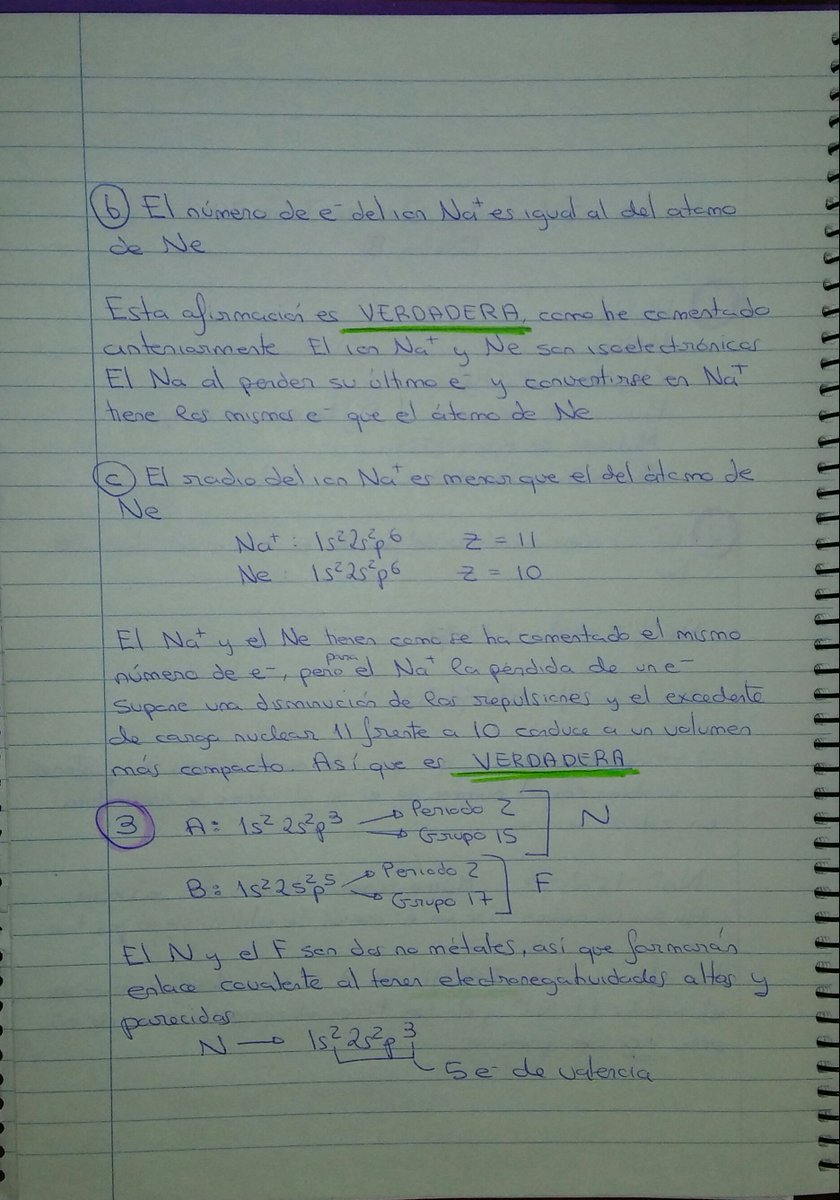 b El número de e⁻ del ion Na⁺ es igual al del átomo
de Ne
Esta afirmación es VERDADERA, como he comentado
anteriormente El ion Na⁺ y Ne son isoelectrónicos
El Na al perder su último e⁻ y convertirse en Na⁺
tiene los mismos e⁻ que el átomo de Ne
c El radio del ion Na⁺ es menor que el del átomo de
Ne
Na⁺: 1s² 2s²p⁶ Z = 11
Ne 1s² 2s²p⁶ Z = 10
El Na⁺ y el Ne tienen como se ha comentado el mismo
número de e⁻, pero para el Na⁺ la pérdida de un e⁻
supone una disminución de las repulsiones y el excedente
de carga nuclear 11 frente a 10 conduce a un volumen
más compacto. Así que es VERDADERA
3 A: 1s² 2s²p³ → Periodo 2 → Grupo 15 N
B: 1s² 2s²p⁵ → Periodo 2 → Grupo 17 F
El N y el F son dos no métales, así que formarán
enlace covalente al tener electronegatividades altas y
parecidas
N → 1s² 2s²p³
5 e⁻ de valencia